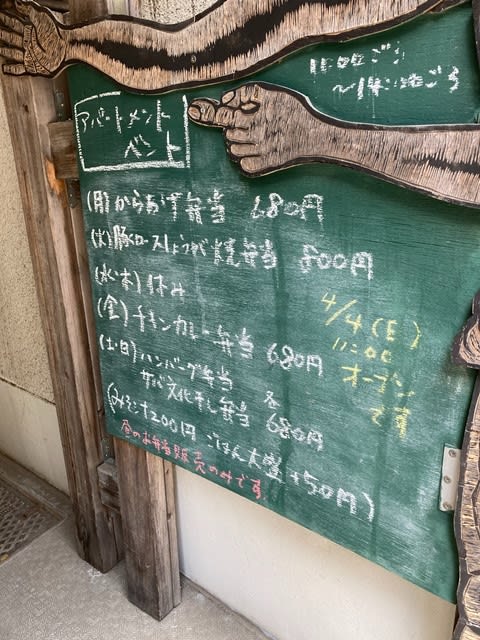 11:00ごろ
〜14:00ごろ
アパートメント
ベント
(月)からあげ弁当 680円
(火)豚ロースしょうが焼弁当 800円
(水・木)休み
(金)チキンカレー弁当 680円
(土・日)ハンバーグ弁当
サバ文化干し弁当 各680円
(みそ汁+200円 ごはん大盛+50円)
昼のお弁当販売のみです
4/4(日)
11:00
オープン
です